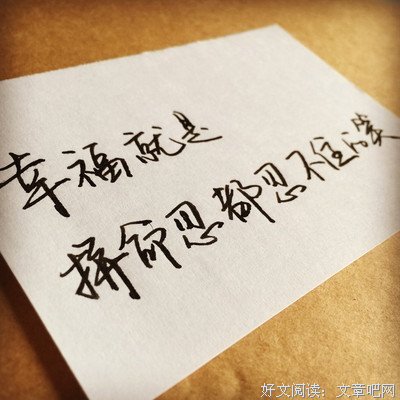 幸福就是
拼命忍都忍不住的笑
好文阅读：文章吧网